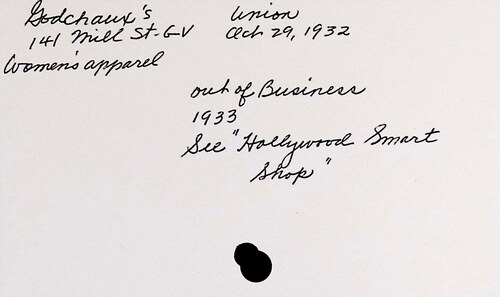 Godchaux's Union
141 Mill St. GV Oct 29, 1932
Women's apparel
out of Business
1933
See "Hollywood Smart
Shop"